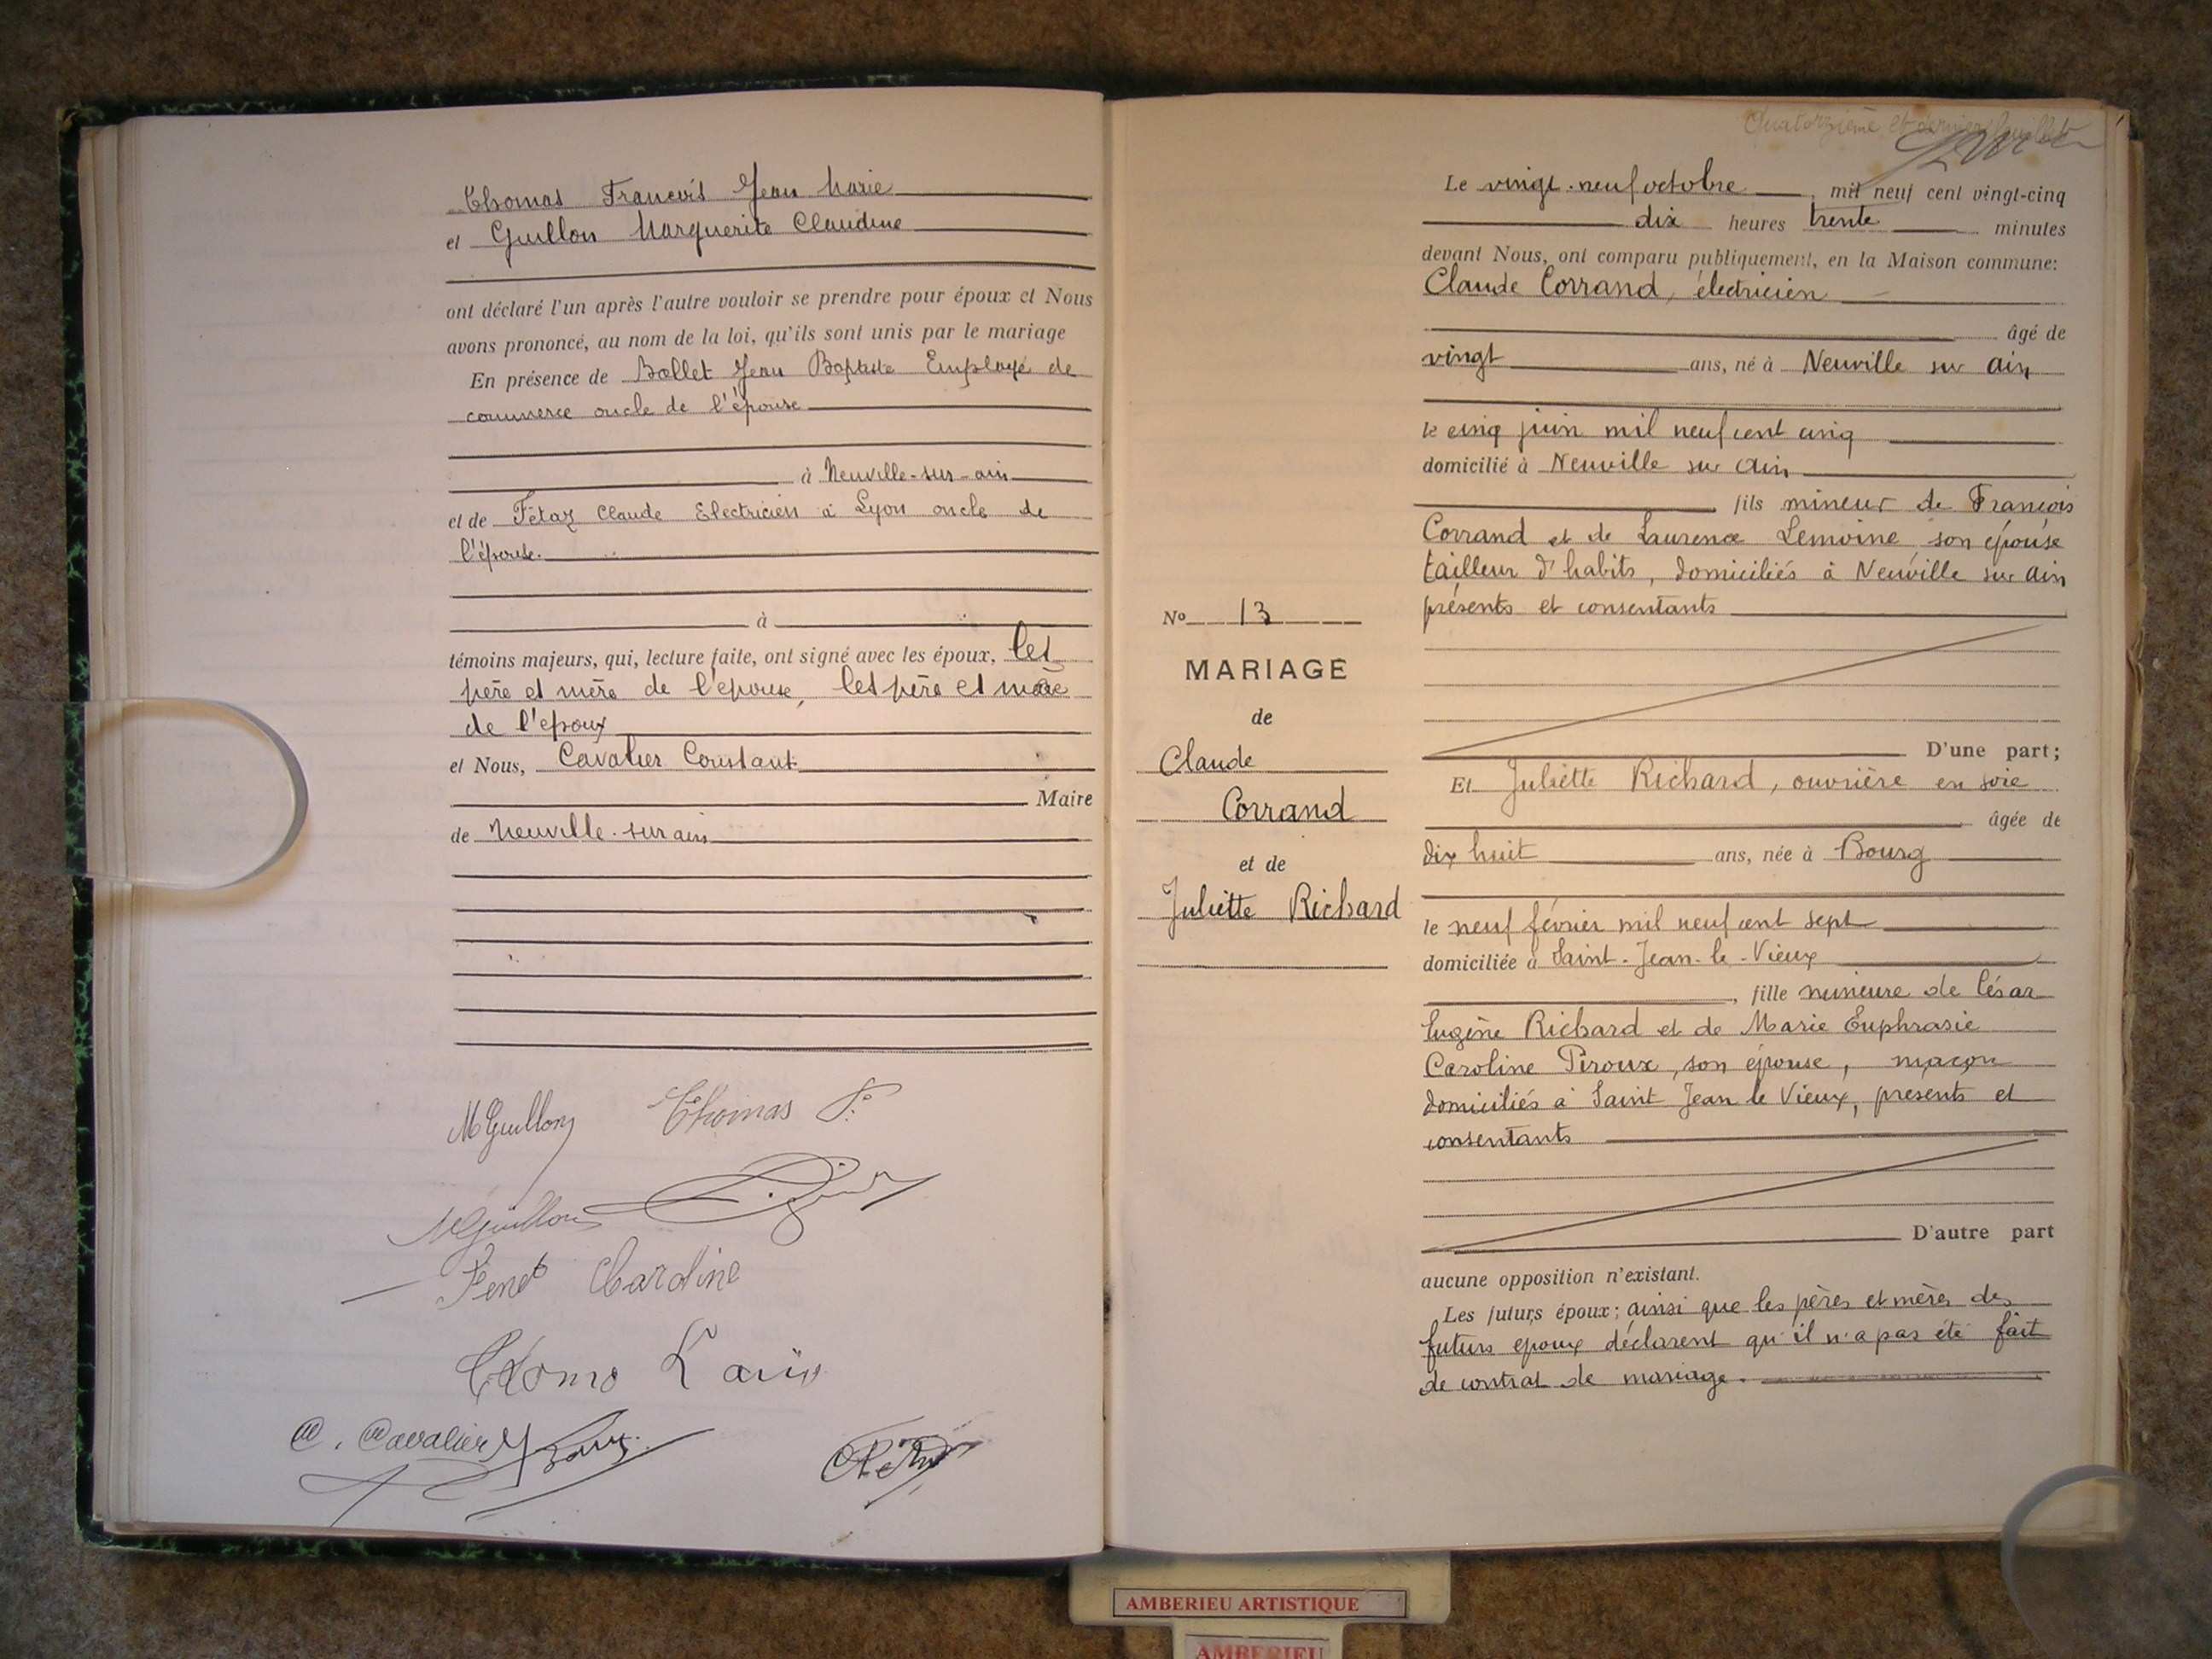 Thomas François Jean Marie
et Guillon Marguerite Claudine
ont déclaré l'un après l'autre vouloir se prendre pour époux et Nous
avons prononcé, au nom de la loi, qu'ils sont unis par le mariage
En présence de Ballet Jean Baptiste Employé de
commerce oncle de l'épouse
à Neuville-sur-ain
et de Fétaz Claude Electricien à Lyon oncle de
l'épouse.
à
témoins majeurs, qui, lecture faite, ont signé avec les époux, les
père et mère de l'epouse, les père et mère
de l'epoux
et Nous, Cavalier Constant
Maire
de Neuville-sur ain
MGuillon Thomas F.
MGuillon
Caroline
C. Cavalier
Quatorzième et dernier feuillet
Le vingt-neuf octobre, mil neuf cent vingt-cinq
dix heures trente minutes
devant Nous, ont comparu publiquement, en la Maison commune:
Claude Corrand, électricien
âgé de
vingt ans, né à Neuville sur ain
le cinq juin mil neuf cent cinq
domicilié à Neuville sur Ain
fils mineur de François
Corrand et de Laurence Lemoine son épouse
tailleur d'habits, domiciliés à Neuville sur Ain
présents et consentants
No 13
MARIAGE
de
Claude
Corrand
et de
Juliette Richard
D'une part;
Et Juliette Richard, ouvrière en soie
âgée de
dix huit ans, née à Bourg
le neuf février mil neuf cent sept
domiciliée à Saint-Jean-le-Vieux
, fille mineure de César
Eugène Richard et de Marie Euphrasie
Caroline Peroux, son épouse, maçon
domiciliés à Saint Jean le Vieux, presents et
consentants
D'autre part
aucune opposition n'existant.
Les futurs époux; ainsi que les pères et mères des
futurs epoux déclarent qu'il n'a pas été fait
de contrat de mariage.
AMBERIEU ARTISTIQUE
AMBERIEU